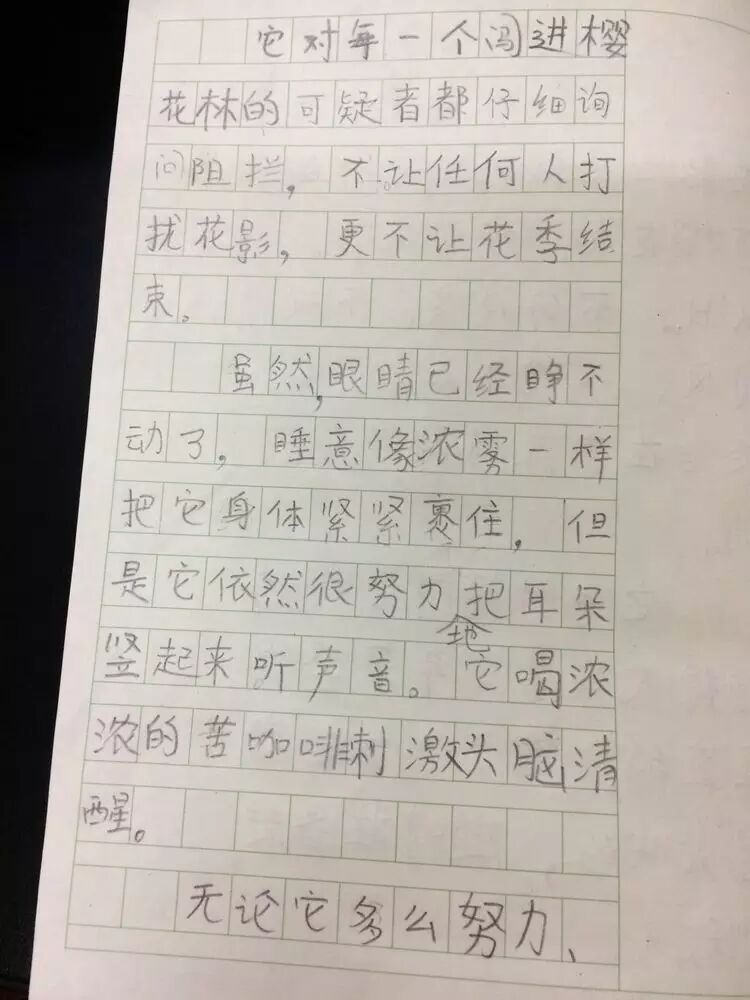 它对每一个闯进樱
花林的可疑者都仔细询
问阻拦，不让任何人打
扰花影，更不让花季结
束。
虽然，眼睛已经睁不
动了，睡意像浓雾一样
把它身体紧紧裹住，但
是它依然很努力地把耳朵
竖起来听声音。它喝浓
浓的苦咖啡刺激头脑清
醒。
无论它多么努力、